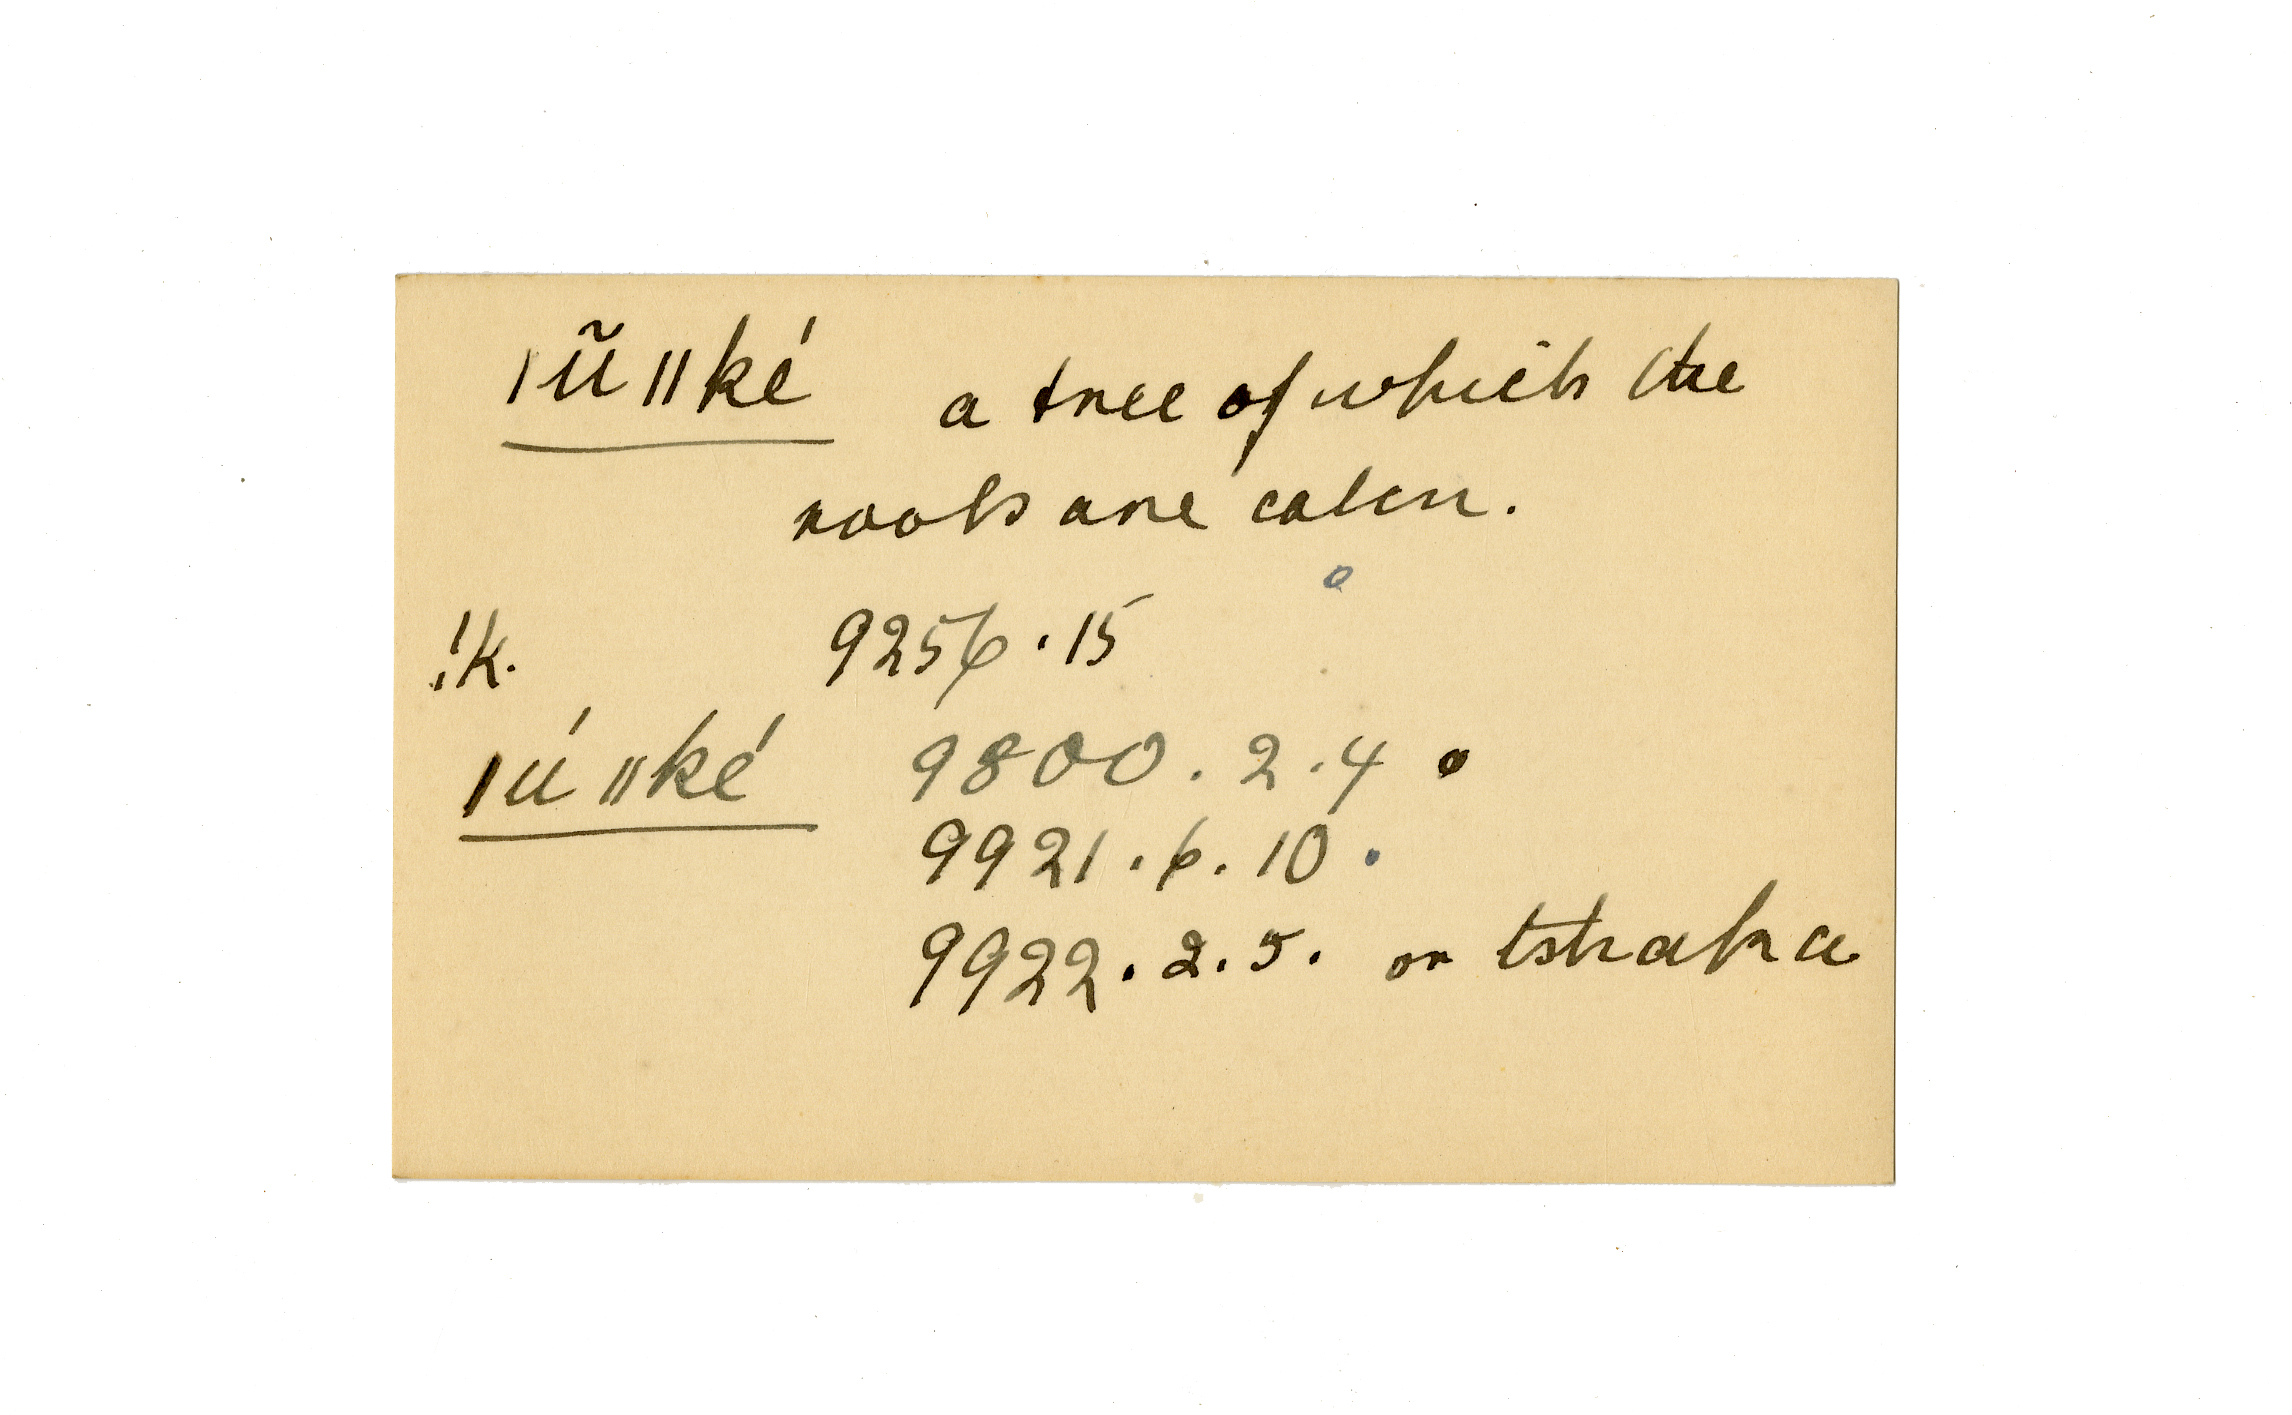 ǀũ ǁké a tree of which the
roots are eaten.
!k. 9256.15
ǀú ǁké 9800.2.4
9921.6.10.
9922.2.5. or